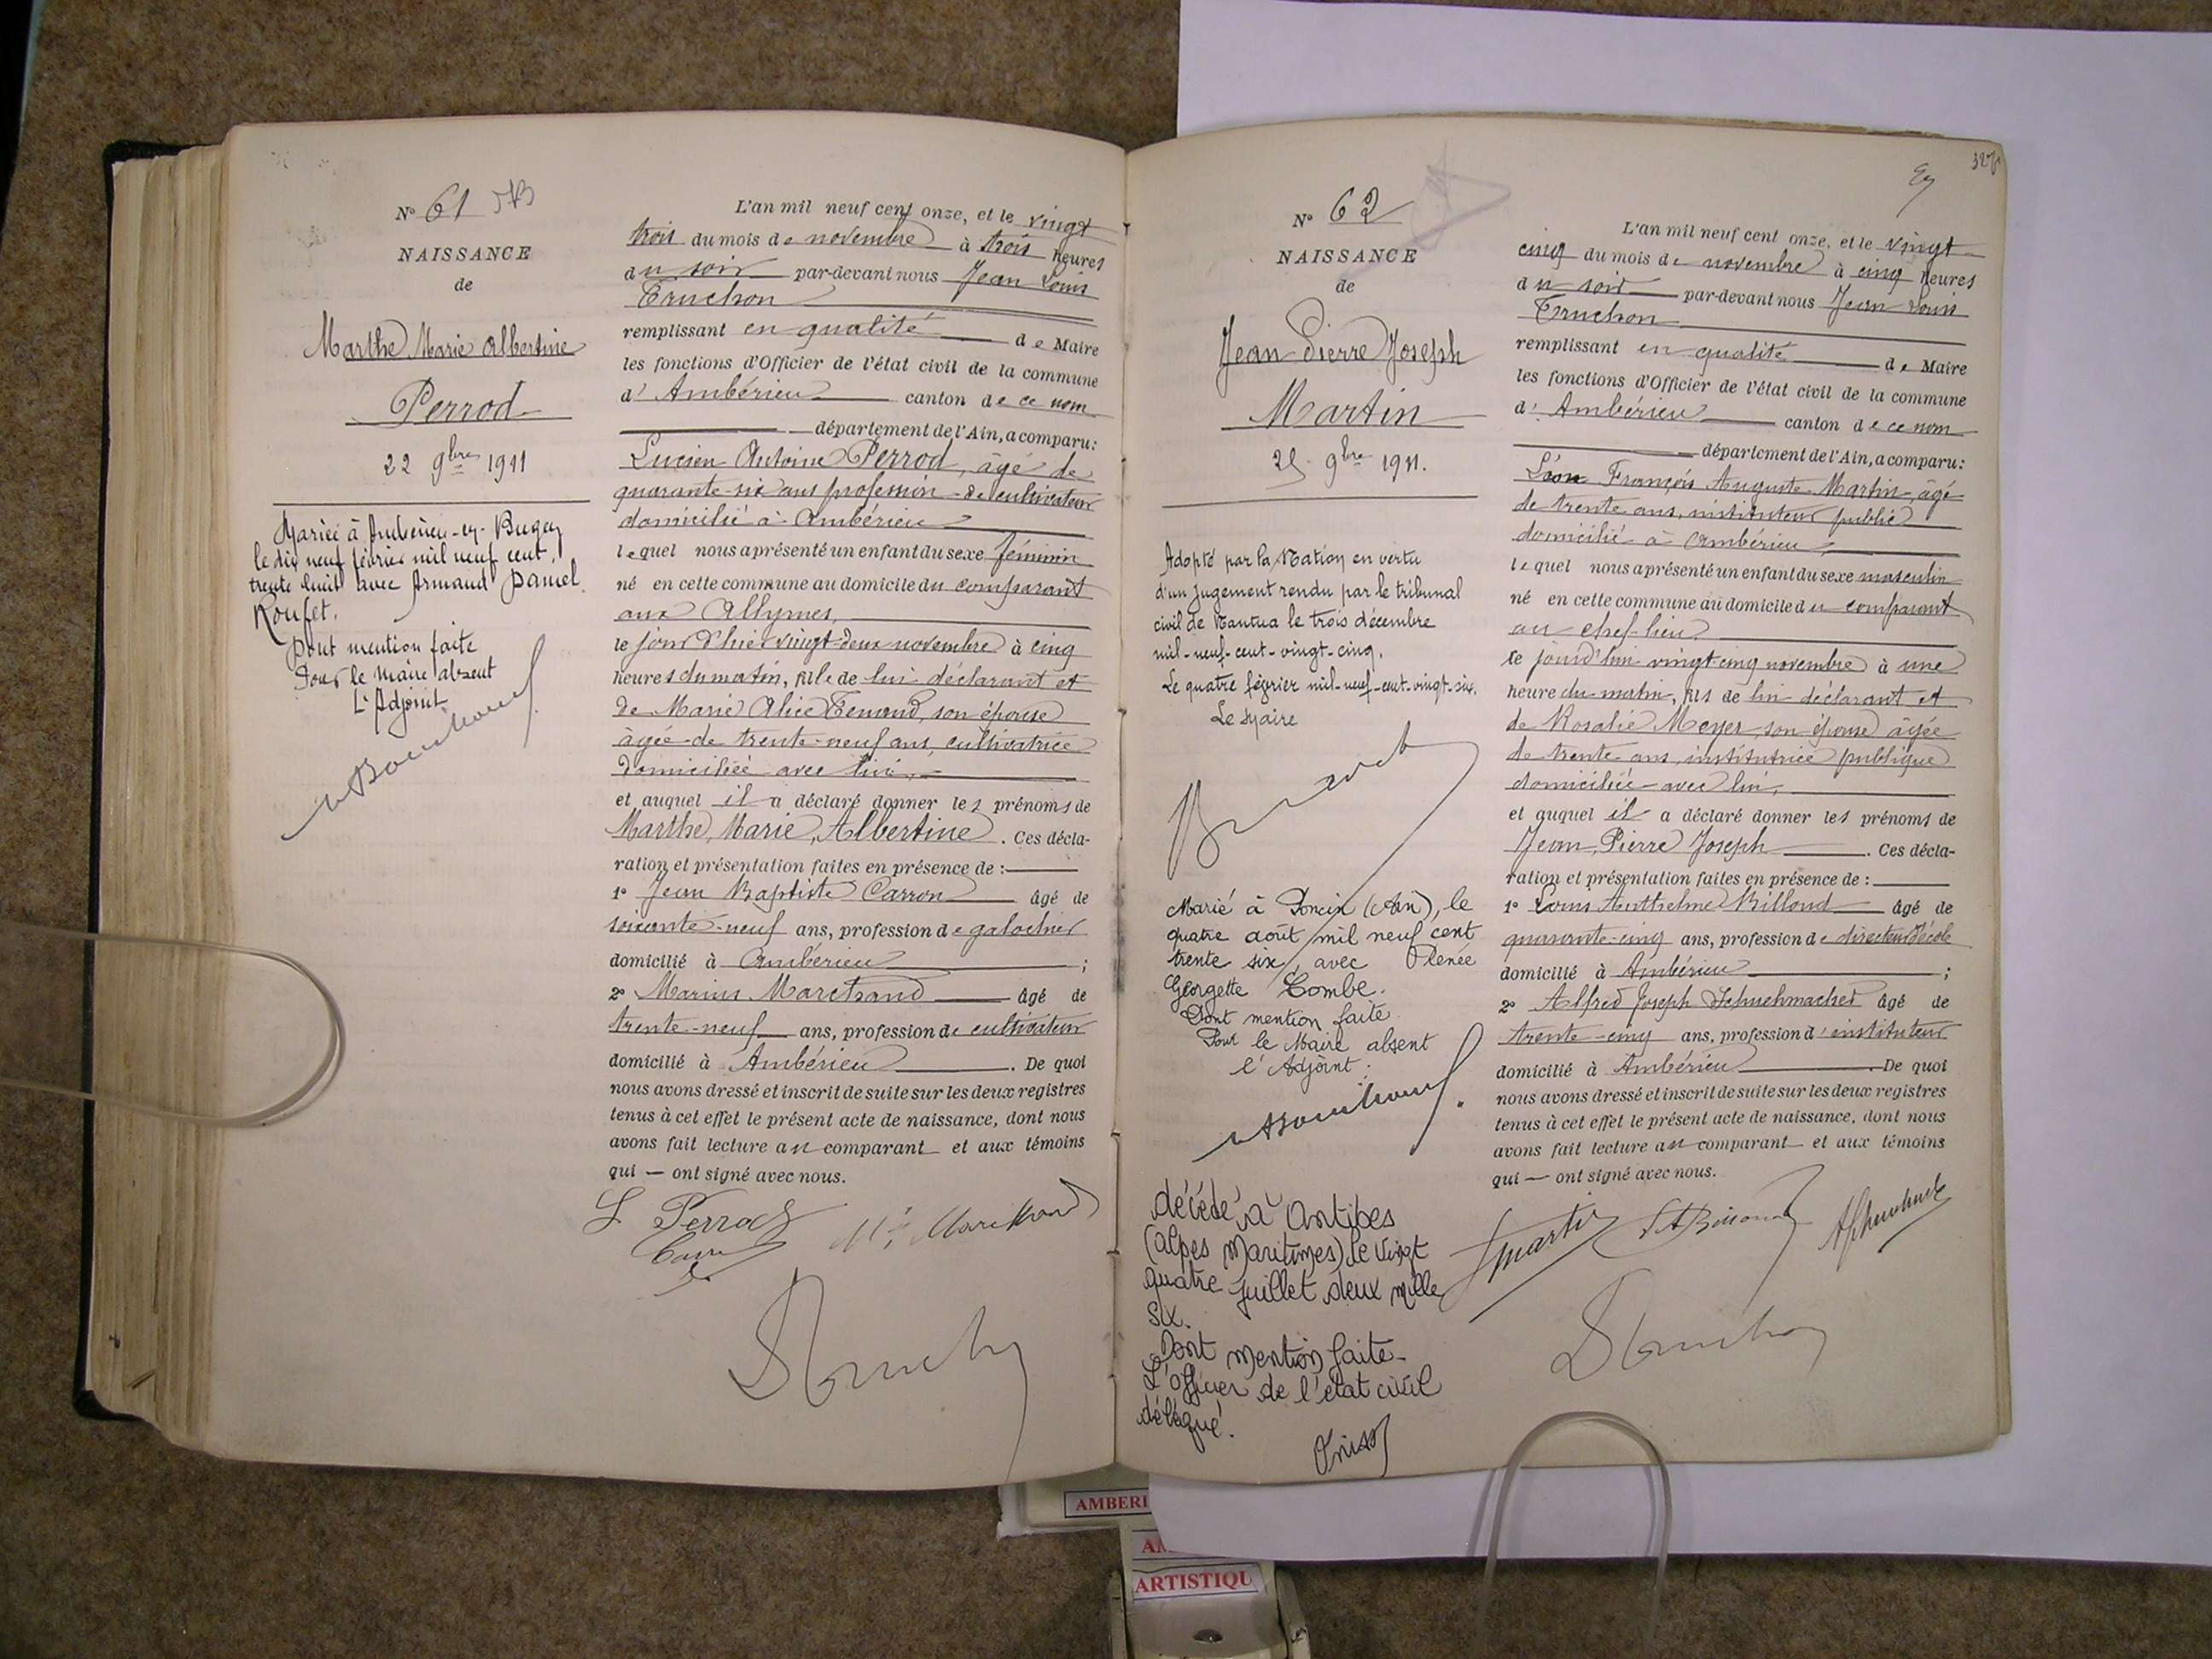 N° 61
NAISSANCE
de
Marthe Marie Albertine
Perrod
22 9bre 1911
Mariée à Ambérieu-en-Bugey
le dix neuf février mil neuf cent
trente huit avec Armand Daniel
Roufet.
Dont mention faite
Pour le Maire absent
L'Adjoint
L'an mil neuf cent onze, et le vingt
trois du mois de novembre à trois heures
du soir par-devant nous Jean Louis
Truchon
remplissant en qualité de Maire
les fonctions d'Officier de l'état civil de la commune
d'Ambérieu canton de ce nom
département de l'Ain, a comparu:
Lucien Antoine Perrod, âgé de
quarante-six ans profession de cultivateur
domicilié à Ambérieu
lequel nous a présenté un enfant du sexe féminin
né en cette commune au domicile du comparant
aux Allymes,
le jour d'hier vingt-deux novembre à cinq
heures du matin, fille de lui déclarant et
de Marie Alice Tenand, son épouse
âgée de trente-neuf ans, cultivatrice
domiciliée avec lui,
et auquel il a déclaré donner les prénoms de
Marthe, Marie, Albertine. Ces décla-
ration et présentation faites en présence de :
1° Jean Baptiste Carron âgé de
soixante-neuf ans, profession de galochier
domicilié à Ambérieu ;
2° Marius Marchand âgé de
trente-neuf ans, profession de cultivateur
domicilié à Ambérieu. De quoi
nous avons dressé et inscrit de suite sur les deux registres
tenus à cet effet le présent acte de naissance, dont nous
avons fait lecture au comparant et aux témoins
qui — ont signé avec nous.
L Perrod
Marchand
Truchon
N° 62
NAISSANCE
de
Jean Pierre Joseph
Martin
25 9bre 1911.
Adopté par la Nation en vertu
d'un jugement rendu par le tribunal
civil de Nantua le trois décembre
mil-neuf-cent-vingt-cinq.
Le quatre février mil-neuf-cent-vingt-six.
Le Maire
Marié à Poncin (Ain), le
quatre août mil neuf cent
trente six, avec Renée
Georgette Combe.
Dont mention faite
Pour le Maire absent
l'Adjoint :
décédé à Antibes
(Alpes Maritimes) le vingt
quatre juillet deux mille
six.
Dont mention faite-
L'officier de l'état civil
délégué.
L'an mil neuf cent onze, et le vingt
cinq du mois de novembre à cinq heures
du soir par-devant nous Jean Louis
Truchon
remplissant en qualité de Maire
les fonctions d'Officier de l'état civil de la commune
d'Ambérieu canton de ce nom
département de l'Ain, a comparu:
Léon François Auguste Martin, âgé
de trente ans, instituteur public
domicilié à Ambérieu,
lequel nous a présenté un enfant du sexe masculin
né en cette commune au domicile du comparant
au chef-lieu
le jourd'hui vingt-cinq novembre à une
heure du matin, fils de lui déclarant et
de Rosalie Meyer son épouse âgée
de trente ans, institutrice publique
domiciliée avec lui,
et auquel il a déclaré donner les prénoms de
Jean, Pierre Joseph. Ces décla-
ration et présentation faites en présence de :
1° Louis Anthelme Billoud âgé de
quarante-cinq ans, profession de directeur d'école
domicilié à Ambérieu ;
2° Alfred Joseph Schuehmacher âgé de
trente-cinq ans, profession d'instituteur
domicilié à Ambérieu. De quoi
nous avons dressé et inscrit de suite sur les deux registres
tenus à cet effet le présent acte de naissance, dont nous
avons fait lecture au comparant et aux témoins
qui — ont signé avec nous.
Martin
Truchon
AMBERI
ARTISTIQU